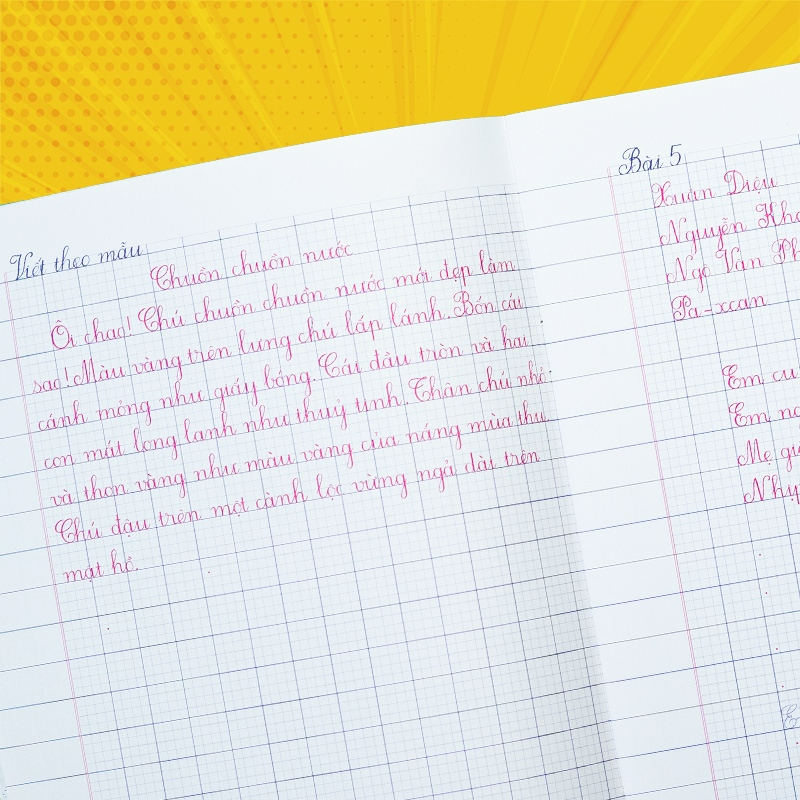 Viết theo mẫu
Chuồn chuồn nước
Ôi chao! Chú chuồn chuồn nước mới đẹp làm
sao! Màu vàng trên lưng chú lấp lánh. Bốn cái
cánh mỏng như giấy bóng. Cái đầu tròn và hai
con mắt long lanh như thuỷ tinh. Thân chú nhỏ
và thon vàng như màu vàng của nắng mùa thu.
Chú đậu trên một cành lộc vừng ngả dài trên
mặt hồ.
Bài 5
Xuân Diệu
Nguyễn Kh
Ngô Văn Ph
Pa-xcan
Em cu
Em n
Mẹ g
Nhụ